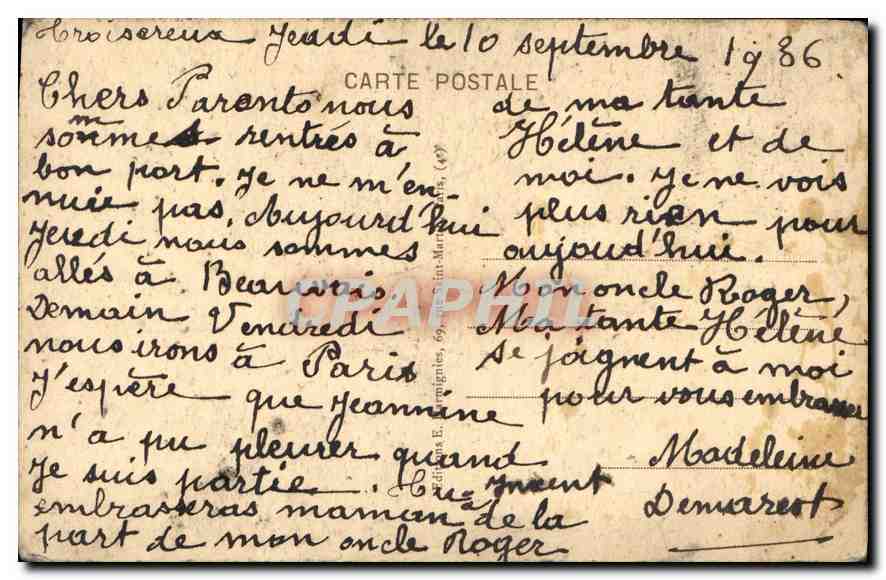 Troissereux Jeudi le 10 septembre 1936
CARTE POSTALE
Chers Parents nous
sommes rentrés à
bon port. Je ne m'en-
nuie pas. Aujourd'hui
Jeudi nous sommes
allés à Beauvais
Demain Vendredi
nous irons à Paris
J'espère que Jeannine
n'a pu pleurer quand
Je suis partie. Tu
embrasseras maman de la
part de mon oncle Roger
de ma tante
Hélène et de
moi. Je ne vois
plus rien pour
aujoud'hui.
Mon oncle Roger,
Ma tante Hélène
se joignent à moi
pour vous embrasser
Madeleine
Demarest
Editions E. 69, rue Saint-Martin, Paris, (4e)
CPAPHIL